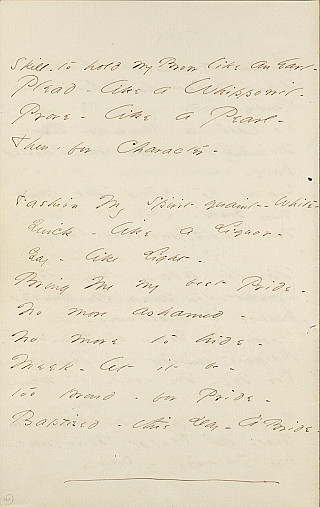 Skill - to hold my Brow like an Earl -
Plead - like a Whippowil -
Prove - like a Pearl -
Then - for Character -
Fashion My Spirit quaint - white -
Quick - like a Liquor -
Gay - like Light -
Bring Me my best Pride -
No more ashamed -
No more to hide -
Meek - let it be -
Too proud - for Pride -
Baptized - this Day - A Bride -